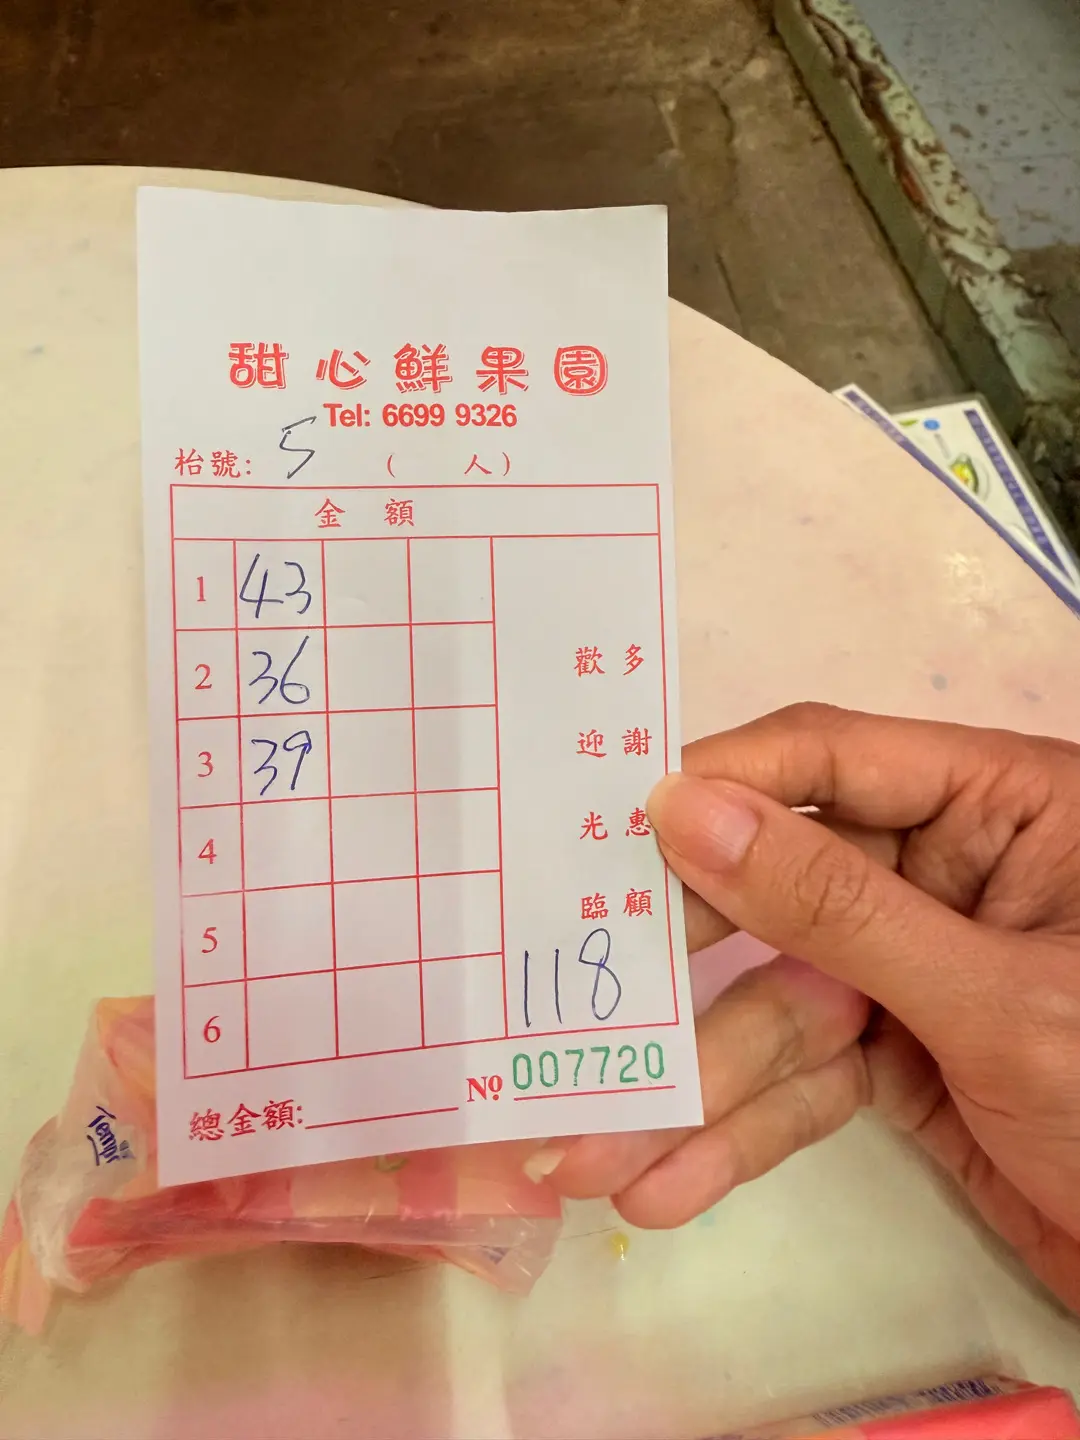 甜心鮮果園
Tel: 6699 9326
枱號: 5 ( 人)
金 額
1 43
2 36
3 39
4
5
6
多謝惠顧
歡迎光臨
118
總金額:
№ 007720